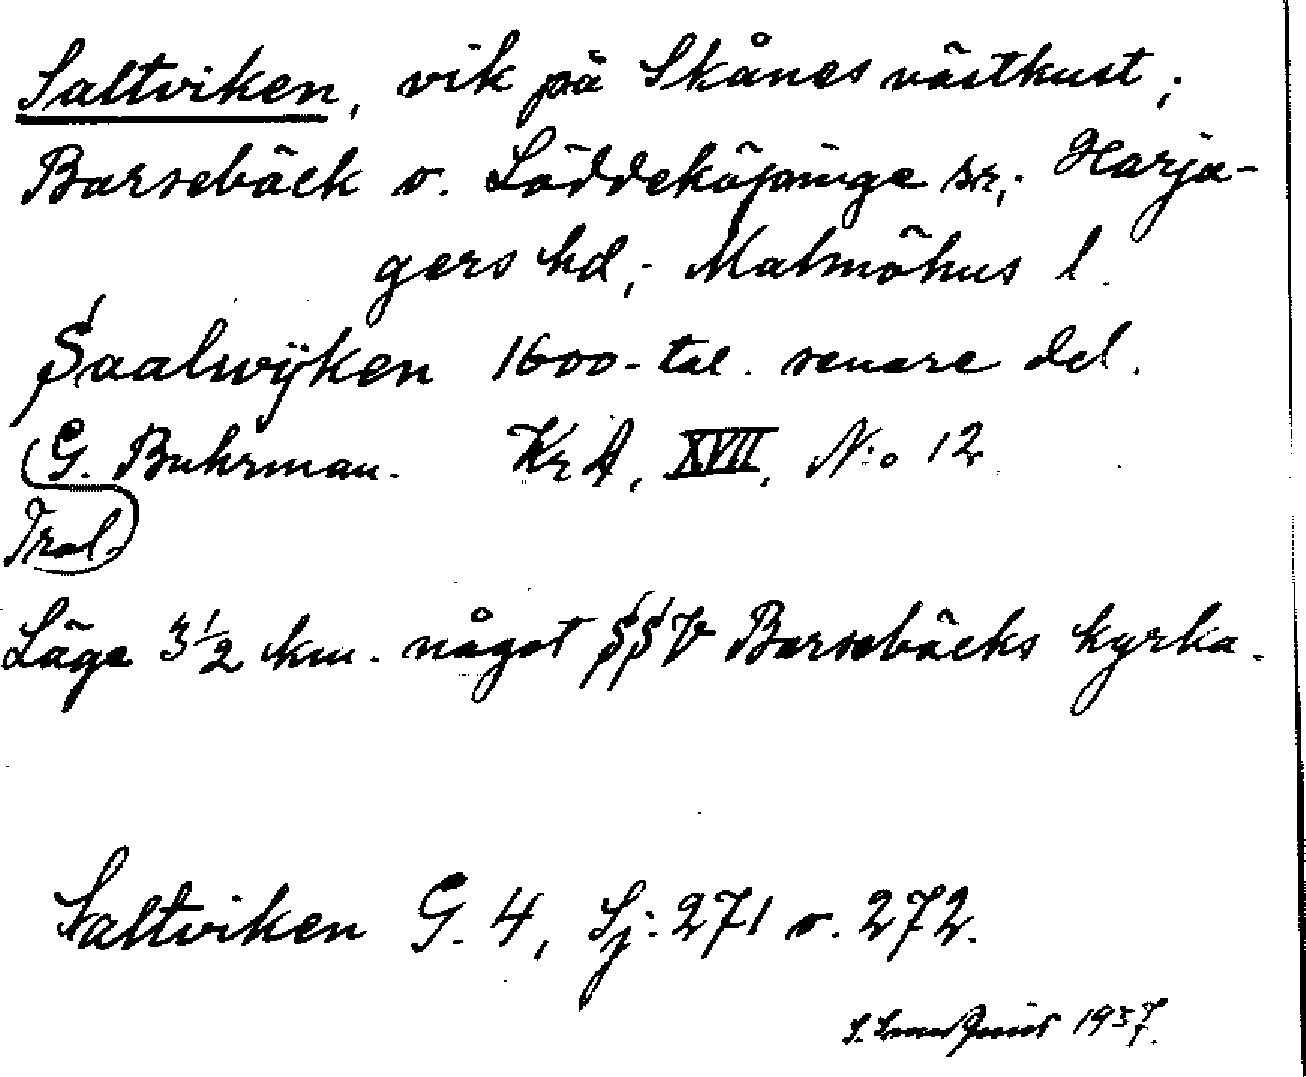 Saltviken, vik på Skånes västkust;
Barsebäck o. Löddeköpinge sr; Harja-
gers hd; Malmöhus l.
Saalwijken 1600-tal. senare del.
G. Buhrman. KrA, XVII, N:o 12
Tral.
Läge 3 1/2 km. något SSV Barsebäcks kyrka.
Saltviken G. 4, Sj: 271 o. 272.
1937.